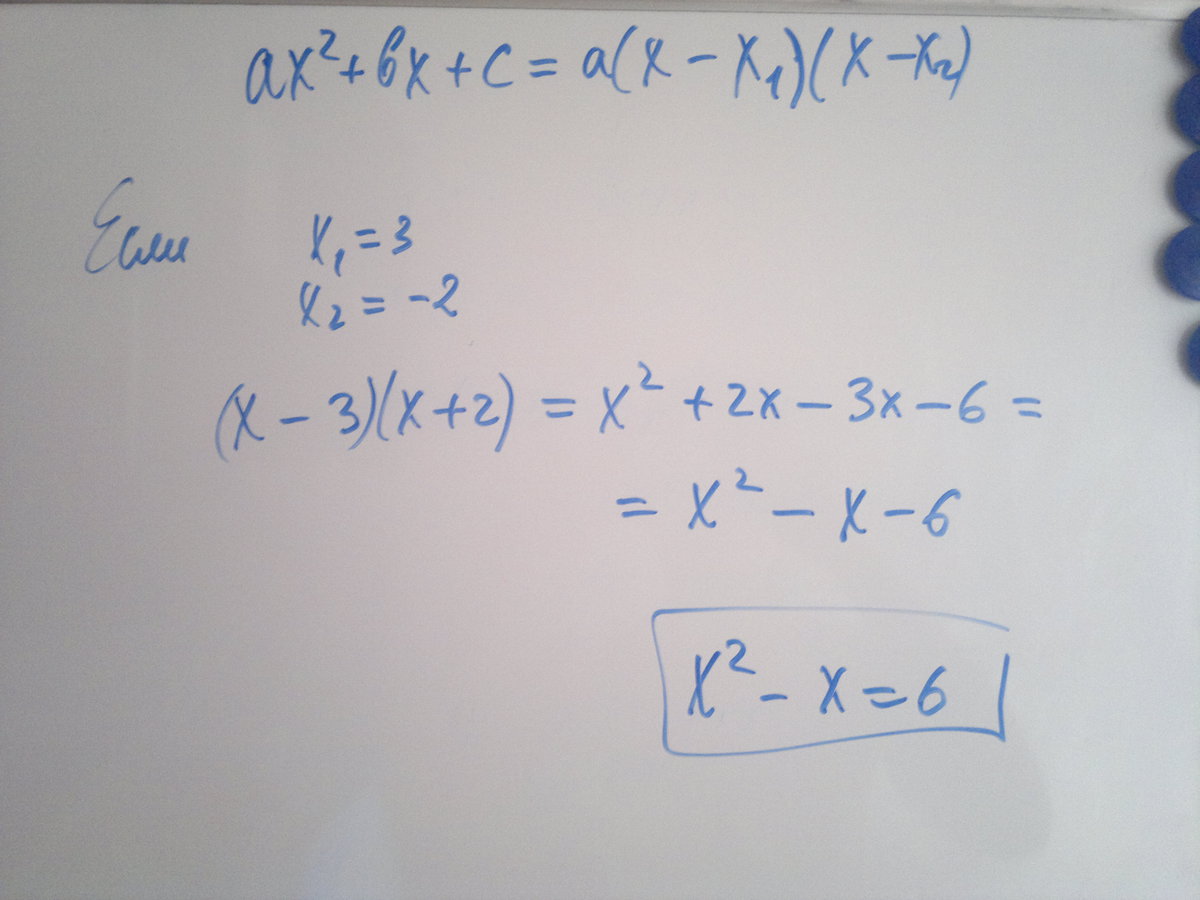 ax² + bx + c = a(x - x₁)(x - x₂)
Если x₁ = 3
x₂ = -2
(x - 3)(x + 2) = x² + 2x - 3x - 6 =
= x² - x - 6
x² - x = 6